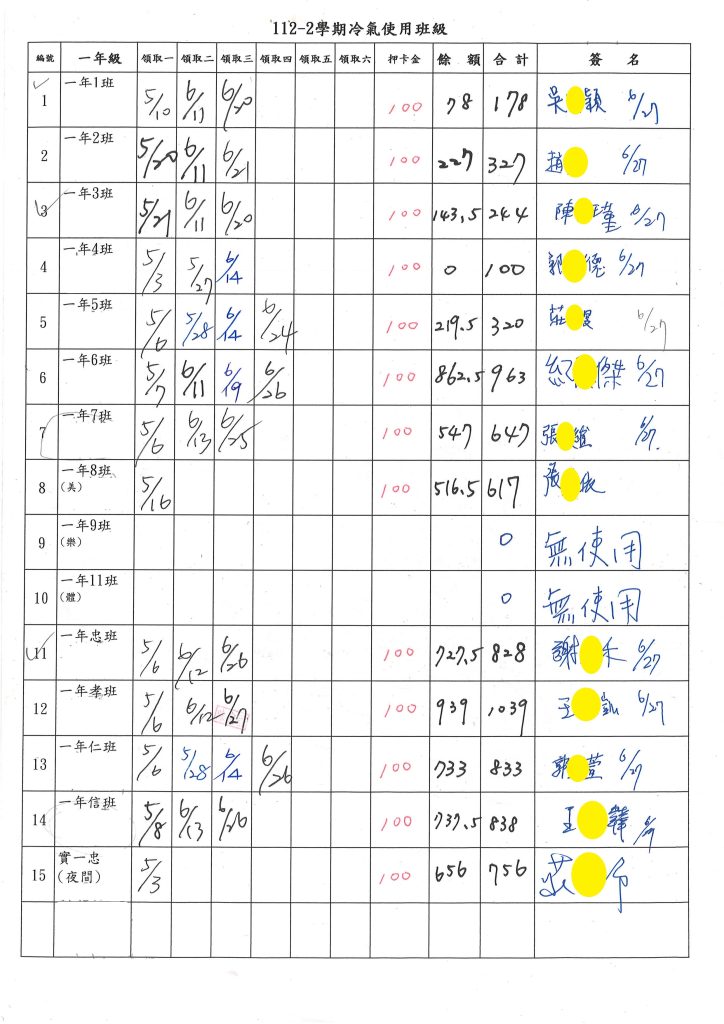 112-2學期冷氣使用班級
編號 一年級 領取一 領取二 領取三 領取四 領取五 領取六 押卡金 餘額 合計 簽名
1 一年1班 5/10 6/11 6/20 100 78 178 吳 穎 6/27
2 一年2班 5/20 6/11 6/21 100 227 327 趙 6/27
3 一年3班 5/21 6/11 6/20 100 143.5 244 陳 瑾 6/27
4 一年4班 5/3 5/27 6/14 100 0 100 郭 德 6/27
5 一年5班 5/6 5/28 6/14 6/24 100 219.5 320 莊 6/27
6 一年6班 5/7 6/11 6/19 6/26 100 862.5 963 紀 傑 6/27
7 一年7班 5/6 6/13 6/25 100 547 647 張 維 6/27
8 一年8班 5/16 100 516.5 617 張
(美)
9 一年9班 0 無使用
(樂)
10 一年11班 0 無使用
(體)
11 一年忠班 5/6 6/12 6/26 100 727.5 828 謝 禾 6/27
12 一年孝班 5/6 6/12 6/27 100 939 1039 王 凱 6/27
13 一年仁班 5/6 5/28 6/14 6/26 100 733 833 郭 萱 6/27
14 一年信班 5/8 6/13 6/26 100 737.5 838 王
15 實一忠 5/3 100 656 756
(夜間)